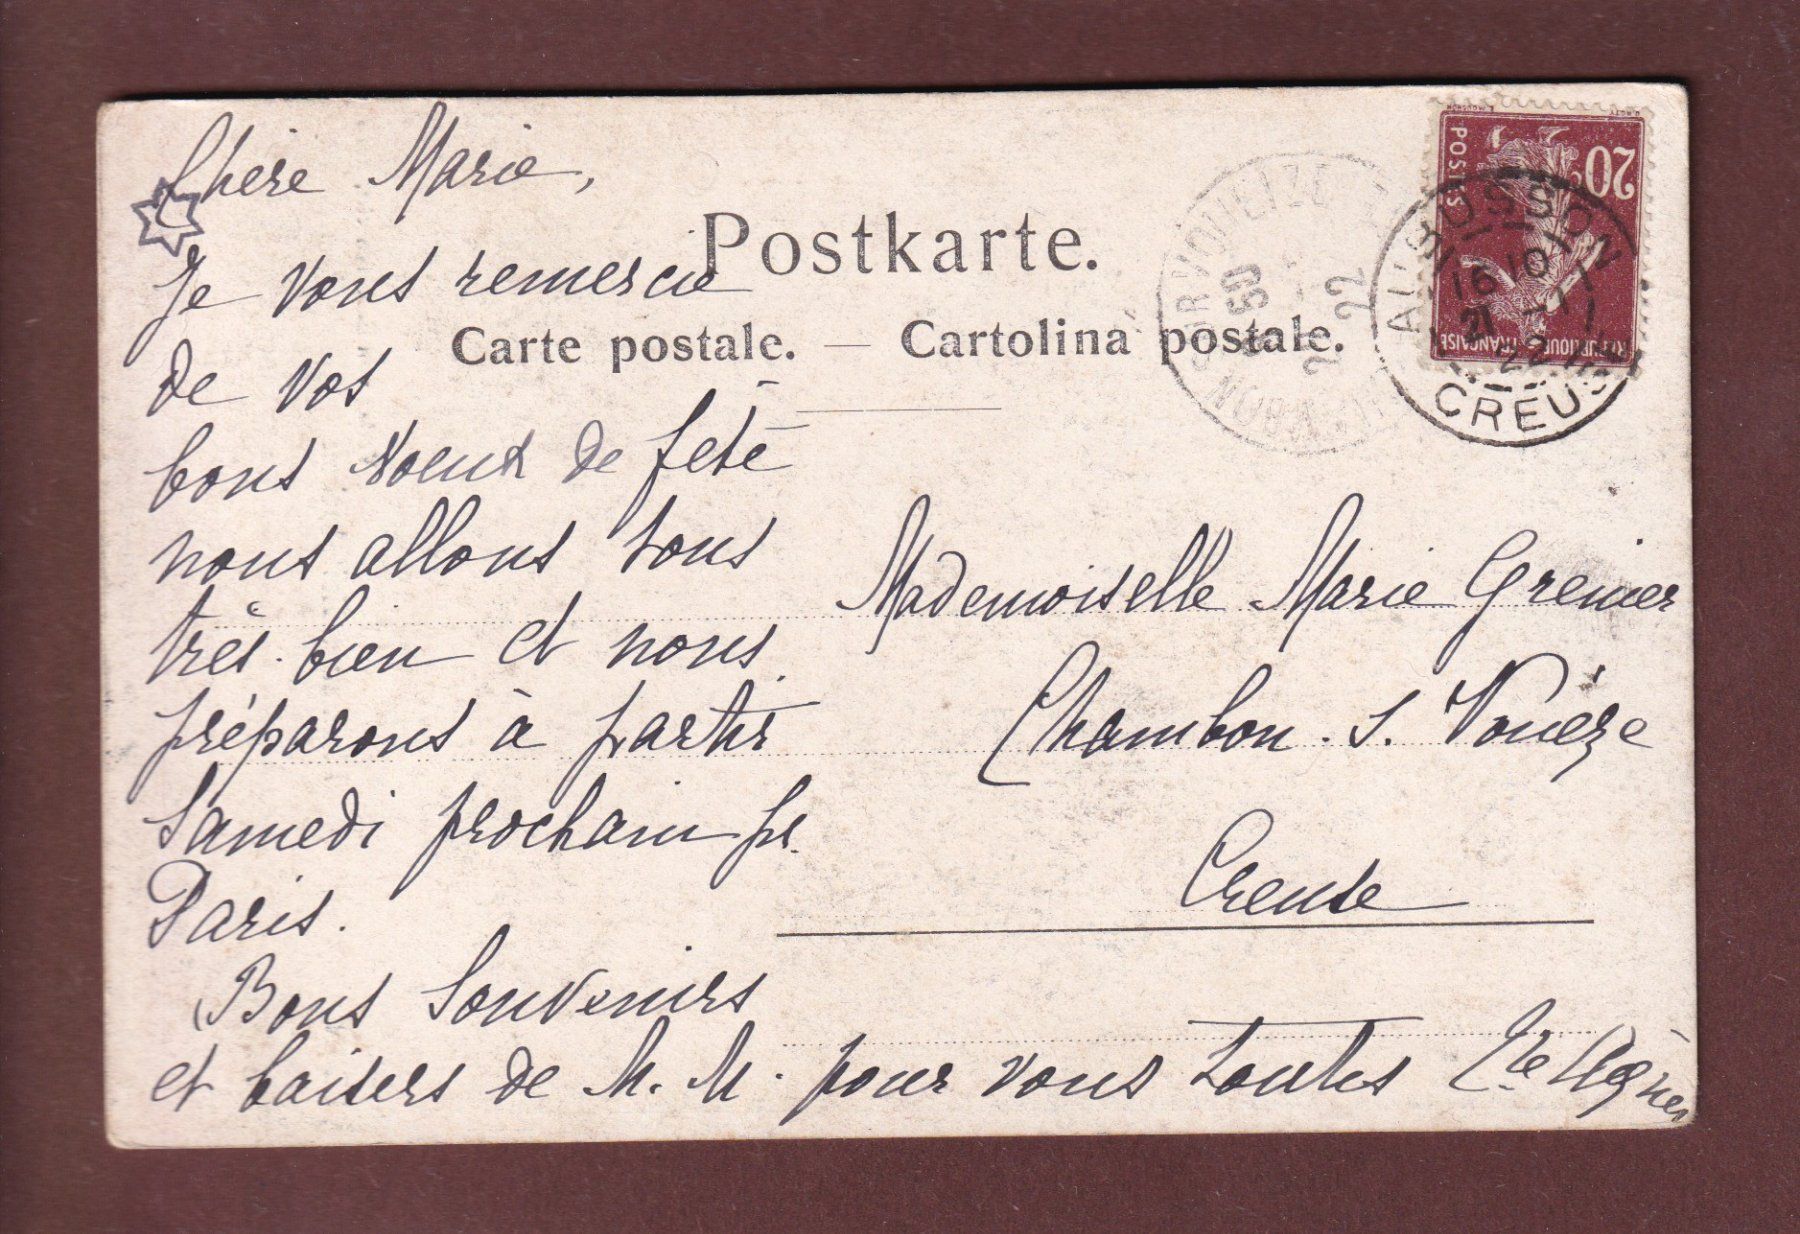 Chère Marie,
Je vous remercie
de vos
bons voeux de fête
nous allons tous
très bien et nous
préparons à partir
Samedi prochain pr.
Paris.
Bons Souvenirs
et baisers de M. M. pour vous toutes
Agnès
Postkarte.
Carte postale. — Cartolina postale.
Mademoiselle Marie Grenier
Chambon. s. Vouèze
Creuse
20c
POSTES
REPUBLIQUE FRANÇAISE
AUBUSSON
16 10
21 - 1
22
CREUSE
22